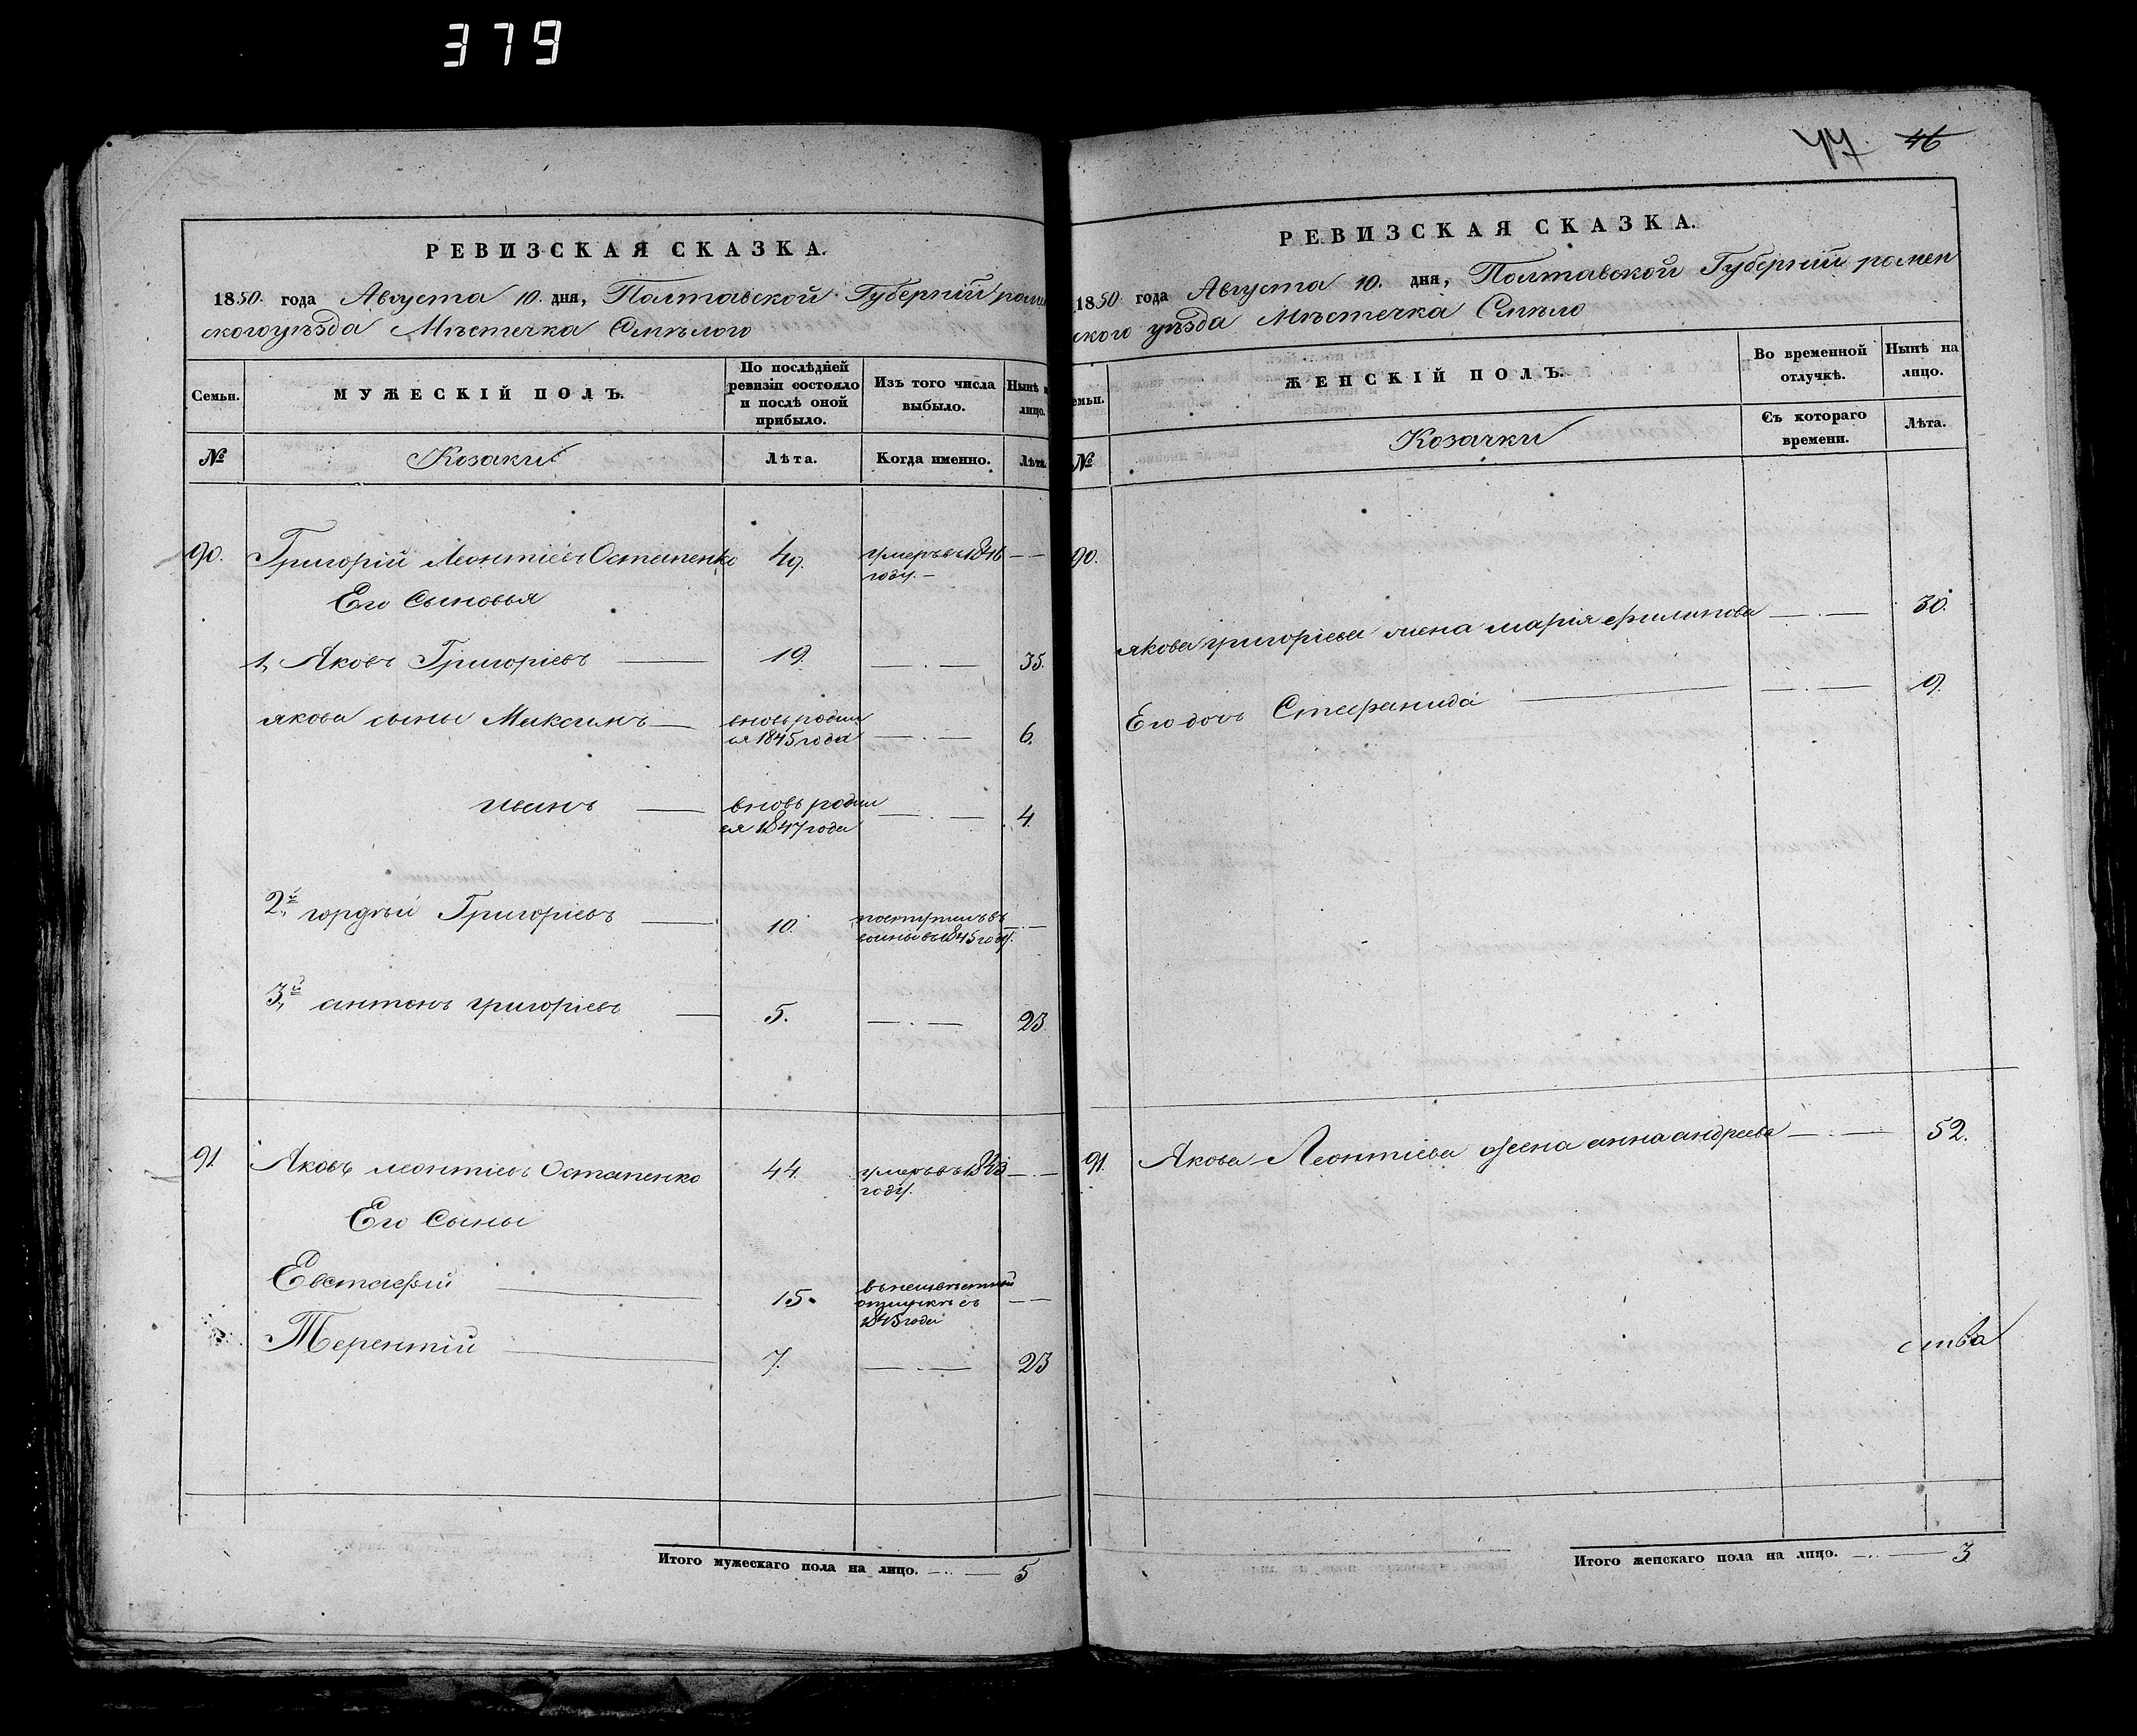 379
РЕВИЗСКАЯ СКАЗКА.
1850. года Августа 10. дня, Полтавской Губерніи ромен
ского уѣзда Мѣстечка Смѣлого
Семьи.
МУЖЕСКІЙ ПОЛЪ.
По послѣдней
ревизіи состояло
и послѣ оной
прибыло.
Изъ того числа
выбыло.
Нынѣ
лицо.
№
Козаки
Лѣта.
Когда именно.
Лѣта
90. Григорій Леонтіевъ Остапенко 49. умеръ въ 1846
году.
Его Сыновья
1, Яковъ Григоріевъ 19. 35.
якова сыны Максимъ вновь родил
ся 1845 года 6.
иванъ вновь родил
ся 1847 года 4.
2й гордѣй Григоріевъ 10. поступилъ въ
воины въ 1845 году.
3й антонъ григоріевъ 5. 23
91 Яковъ леонтіевъ Остапенко 44. умеръ въ 1843
году.
Его Сыны
Евстафій 15. въ неизвѣстной
отлучкѣ съ
1843 года
Терентій 7. 23
Итого мужескаго пола на лицо. 5
47. 46
РЕВИЗСКАЯ СКАЗКА.
1850 года Августа 10. дня, Полтавской Губерніи ромен
ского уѣзда Мѣстечка Смѣло
емьи.
ЖЕНСКІЙ ПОЛЪ.
Во временной
отлучкѣ.
Нынѣ на
лицо.
№
Козачки
Съ котораго
времени.
Лѣта.
90.
якова григоріева жена марія филипова 30.
Его дочь Стефанида 9.
91. Якова Леонтіева жена анна андреева 52.
ства
Итого женскаго пола на лицо. 3